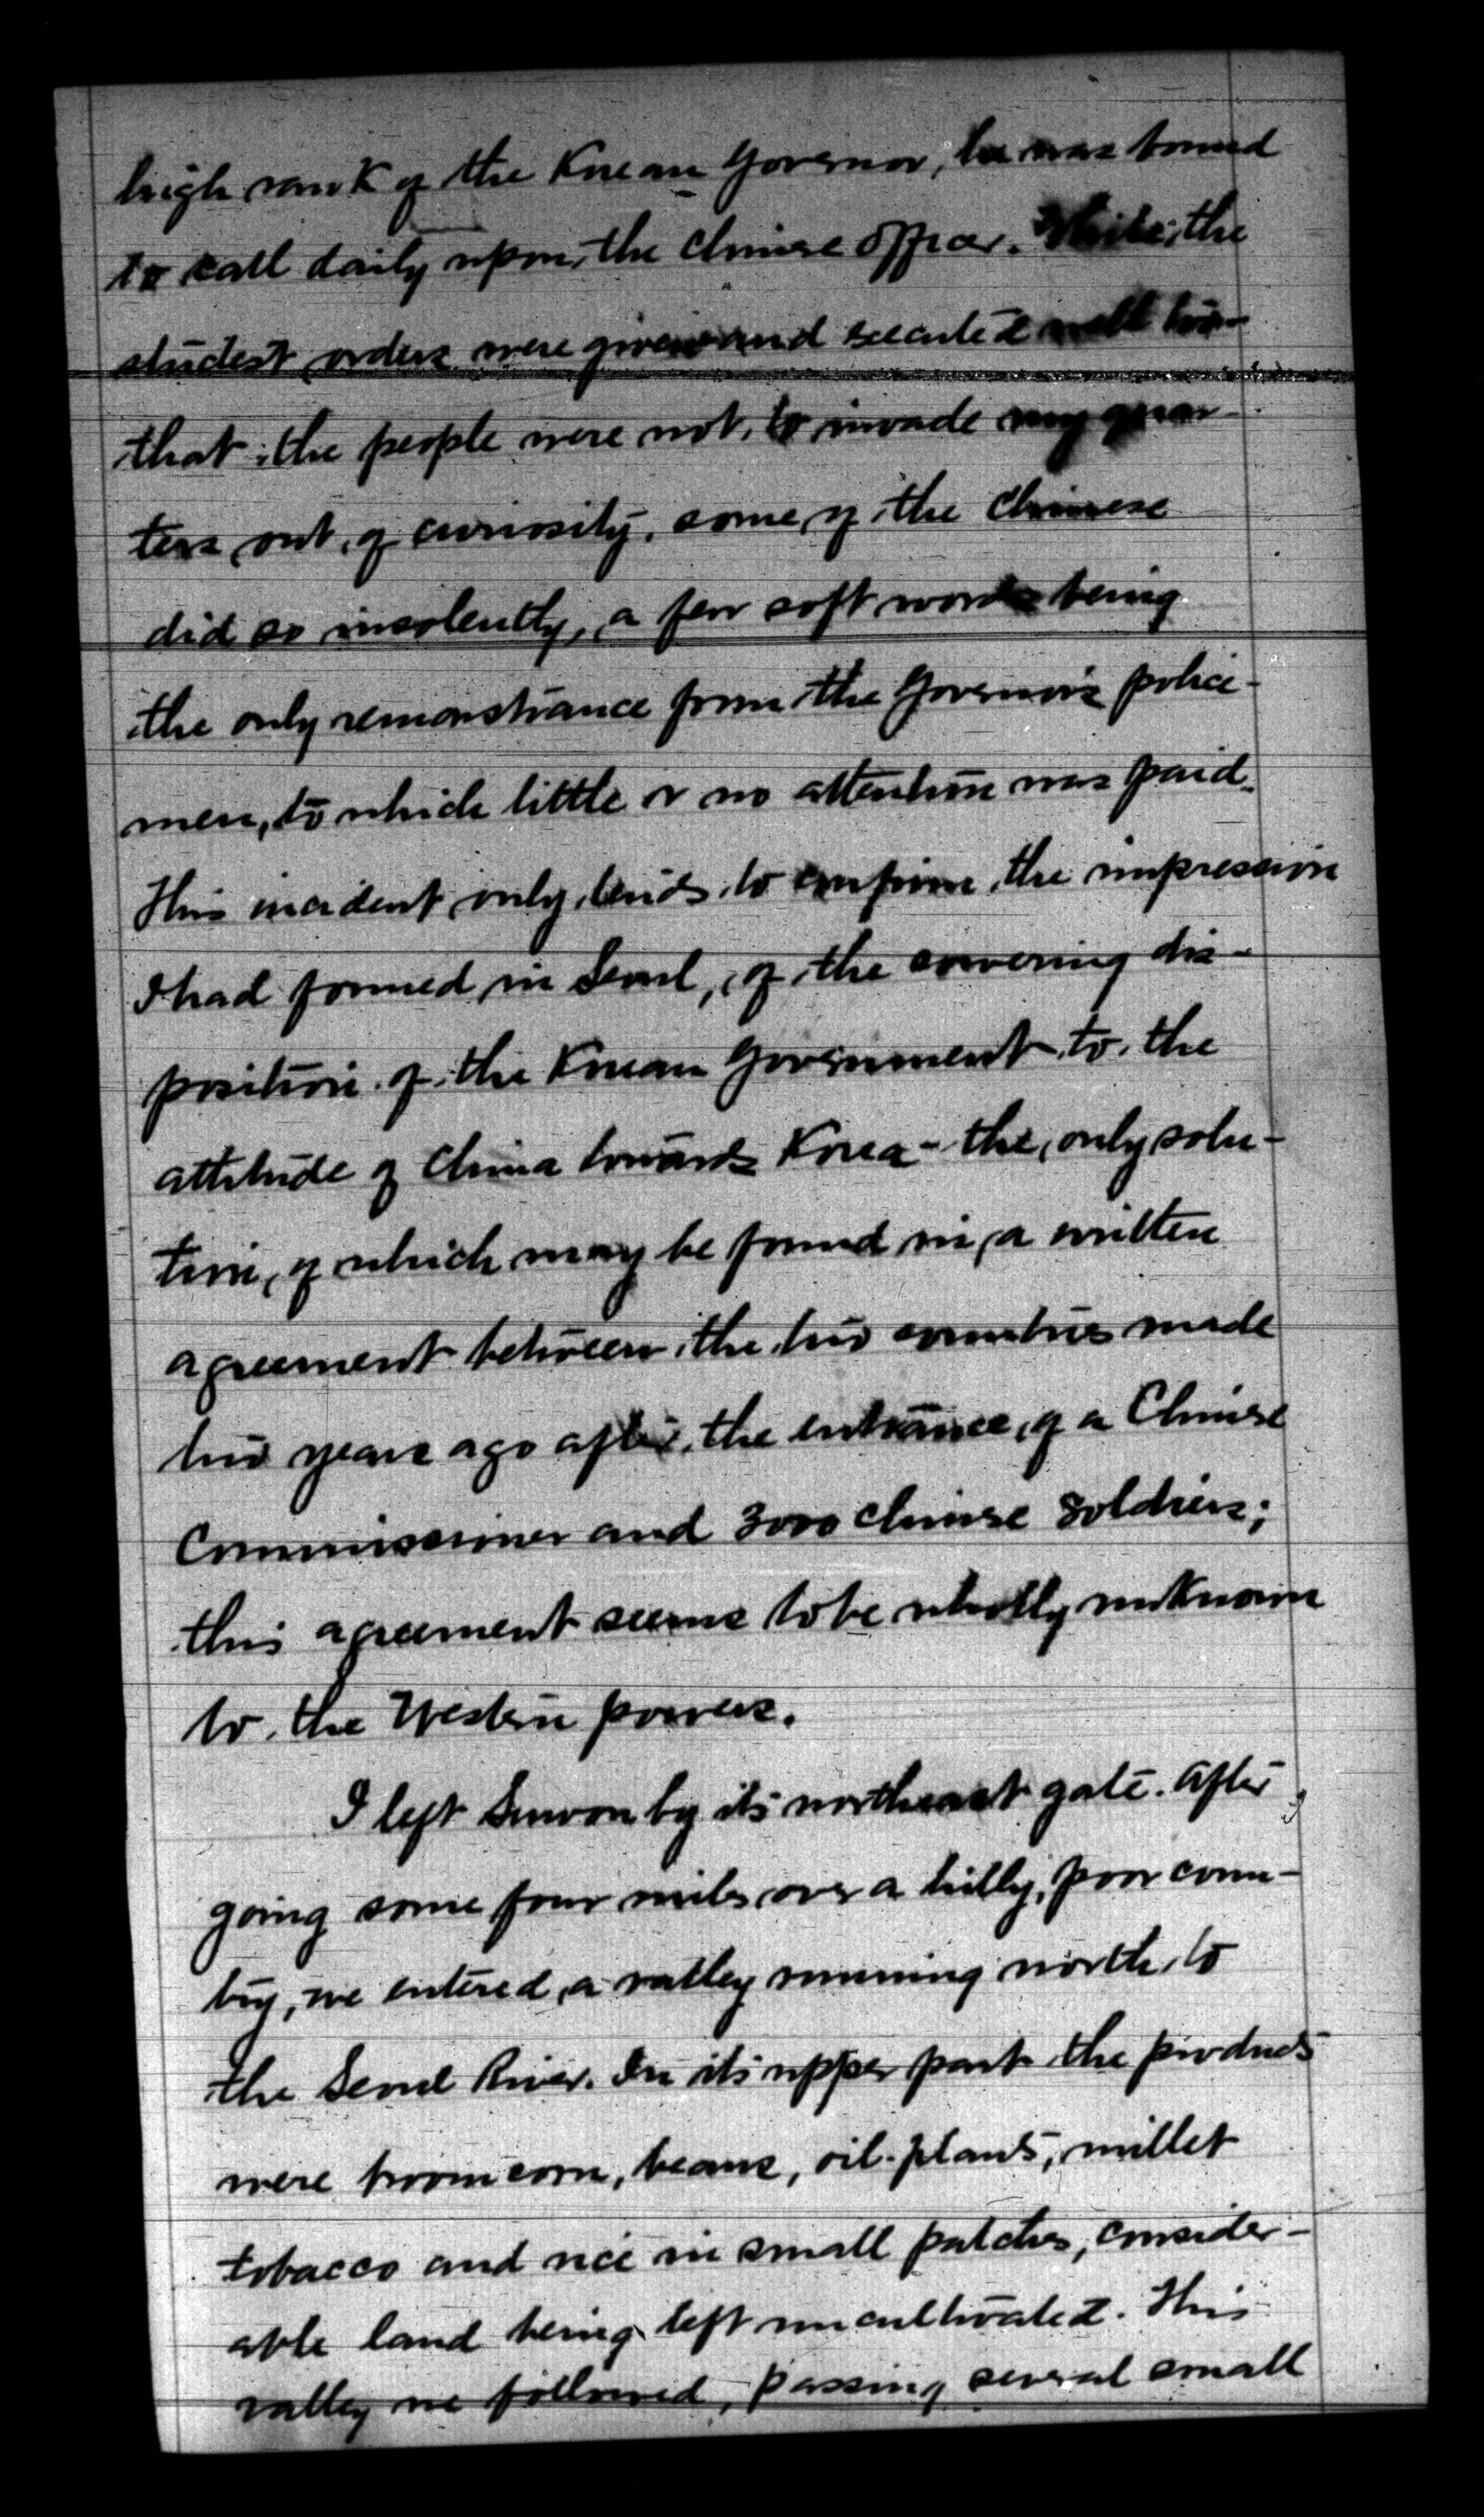 high rank of the Korean Governor, he was bound
to call daily upon the Chinese Officer. While the
studest orders were given and executed well too
that the people were not to invade my quar-
ters out of curiosity, some of the Chinese
did so insolently, a few soft words being
the only remonstrance from the Governor's police-
men, to which little or no attention was paid.
This incident only tends to confirm the impression
I had formed in Seoul, of the cowering dis-
position of the Korean Government to the
attitude of China towards Korea - the only solu-
tion of which may be found in a written
agreement between the two countries made
two years ago after the entrance of a Chinese
Commissioner and 3000 Chinese Soldiers;
this agreement seems to be wholly unknown
to the Western powers.
I left Suwon by its northeast gate. After
going some four miles over a hilly, poor coun-
try, we entered a valley running north to
the Seoul River. In its upper part the products
were broomcorn, beans, oil-plants, millet
tobacco and rice in small patches, consider-
able land being left uncultivated. This
valley we followed, passing several small